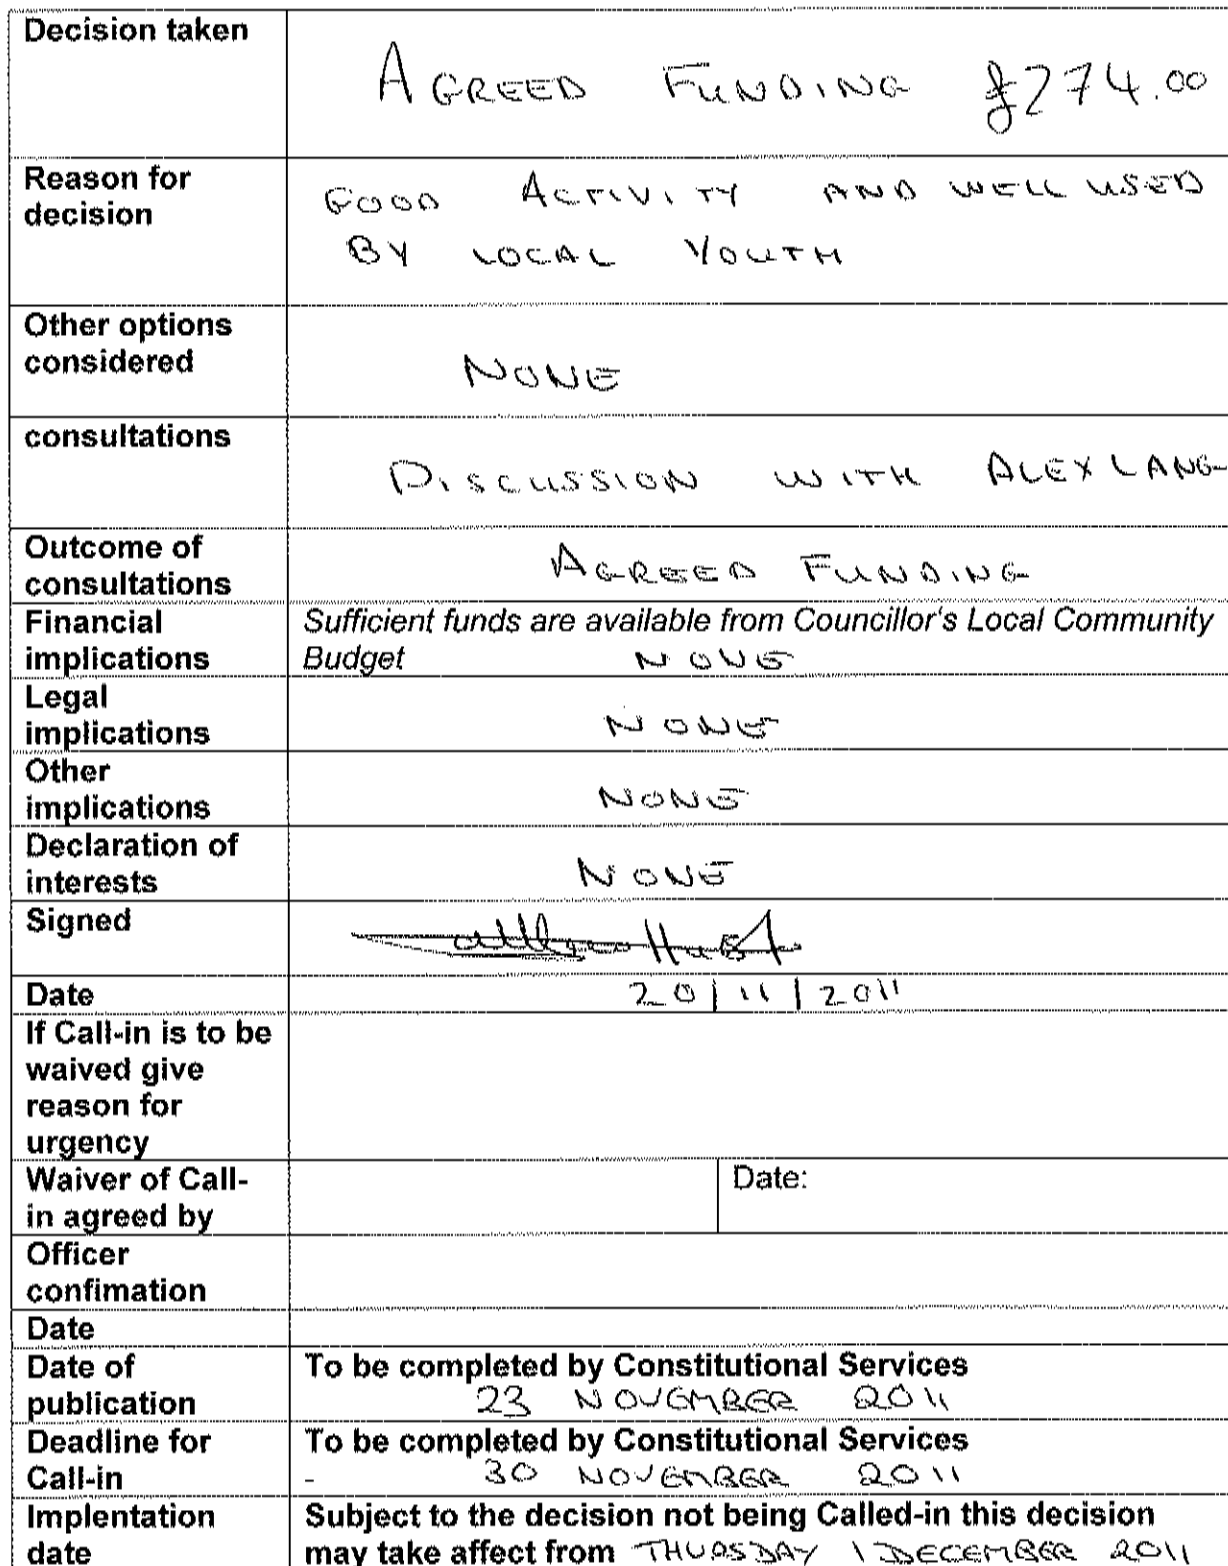 Decision taken
AGREED FUNDING £274.00
Reason for
decision
GOOD ACTIVITY AND WELL USED
BY LOCAL YOUTH
Other options
considered
NONE
consultations
DISCUSSION WITH ALEX LANG
Outcome of
consultations
AGREED FUNDING
Financial
implications
Sufficient funds are available from Councillor's Local Community
Budget NONE
Legal
implications
NONE
Other
implications
NONE
Declaration of
interests
NONE
Signed
Date
20/11/2011
If Call-in is to be
waived give
reason for
urgency
Waiver of Call-
in agreed by
Date:
Officer
confimation
Date
Date of
publication
To be completed by Constitutional Services
23 NOVEMBER 2011
Deadline for
Call-in
To be completed by Constitutional Services
- 30 NOVEMBER 2011
Implentation
date
Subject to the decision not being Called-in this decision
may take affect from THURSDAY 1 DECEMBER 2011